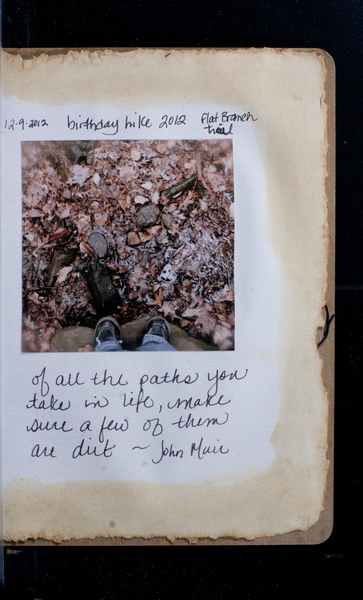 12.9.2012 birthday hike 2012 Flat Branch
trail
of all the paths you
take in life, make
sure a few of them
are dirt ~ John Muir